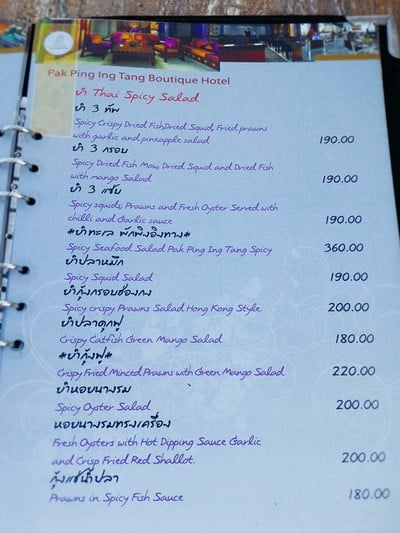 Pak Ping Ing Tang Boutique Hotel
ยำ Thai Spicy Salad
ยำ 3 ทัพ
Spicy Crispy Dried Fish,Dried Squid, Fried prawns
with garlic and pineapple salad 190.00
ยำ 3 กรอบ
Spicy Dried Fish Mow, Dried Squid and Dried Fish
with mango Salad 190.00
ยำ 3 แซ่บ
Spicy squids, Prawns and Fresh Oyster Served with
chilli and Garlic sauce 190.00
*ยำทะเล พักพิงอิงทาง*
Spicy Seafood Salad Pak Ping Ing Tang Spicy 360.00
ยำปลาหมึก
Spicy Squid Salad 190.00
ยำกุ้งกรอบฮ่องกง
Spicy crispy Prawns Salad Hong Kong Style 200.00
ยำปลาดุกฟู
Crispy Catfish Green Mango Salad 180.00
*ยำกุ้งฟู*
Crispy Fried Minced Prawns with Green Mango Salad 220.00
ยำหอยนางรม
Spicy Oyster Salad 200.00
หอยนางรมทรงเครื่อง
Fresh Oysters with Hot Dipping Sauce Garlic
and Crisp Fried Red Shallot. 200.00
กุ้งแช่น้ำปลา
Prawns in Spicy Fish Sauce 180.00